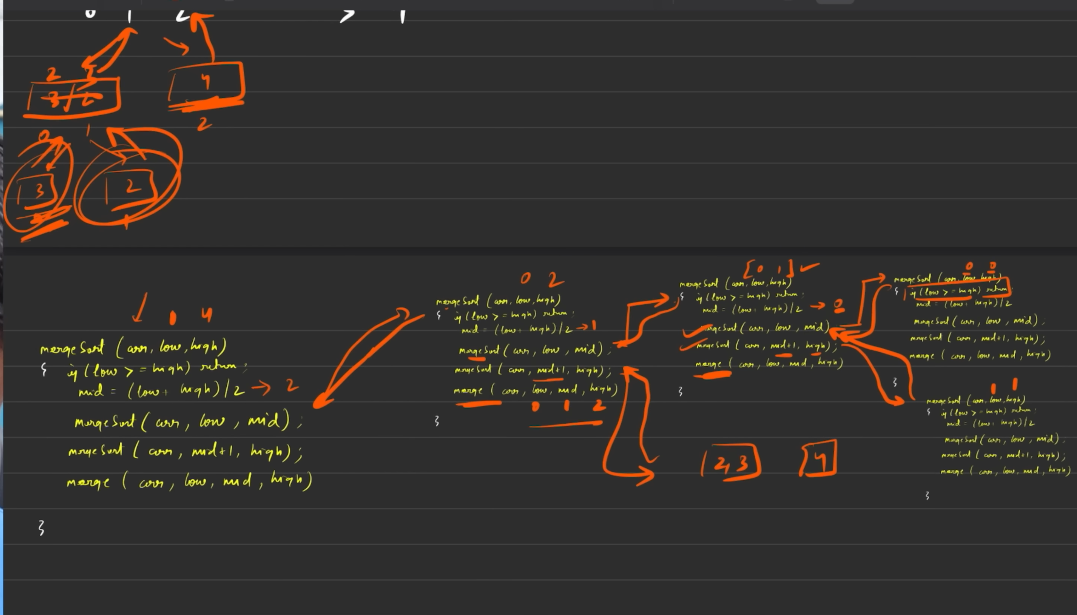 0 1 2 > 1
2 3
3/2
4
2
0 1
3 2
1
0 4
mergeSort (arr, low, high)
{ if (low >= high) return;
mid = (low + high)/2 → 2
mergeSort (arr, low, mid);
mergeSort (arr, mid+1, high);
merge (arr, low, mid, high)
}
0 2
mergeSort (arr, low, high)
{ if (low >= high) return;
mid = (low + high)/2 → 1
mergeSort (arr, low, mid);
mergeSort (arr, mid+1, high);
merge (arr, low, mid, high)
0 1 2
}
[0 1] ✓
mergeSort (arr, low, high)
{ if (low >= high) return;
mid = (low + high)/2 → 0
mergeSort (arr, low, mid)
mergeSort (arr, mid+1, high);
merge (arr, low, mid, high)
}
[2,3] [4]
0 0
mergeSort (arr, low, high)
{ if (low >= high) return;
mid = (low + high)/2
mergeSort (arr, low, mid);
mergeSort (arr, mid+1, high);
merge (arr, low, mid, high)
}
1 1
mergeSort (arr, low, high)
{ if (low >= high) return;
mid = (low + high)/2
mergeSort (arr, low, mid);
mergeSort (arr, mid+1, high);
merge (arr, low, mid, high)
}